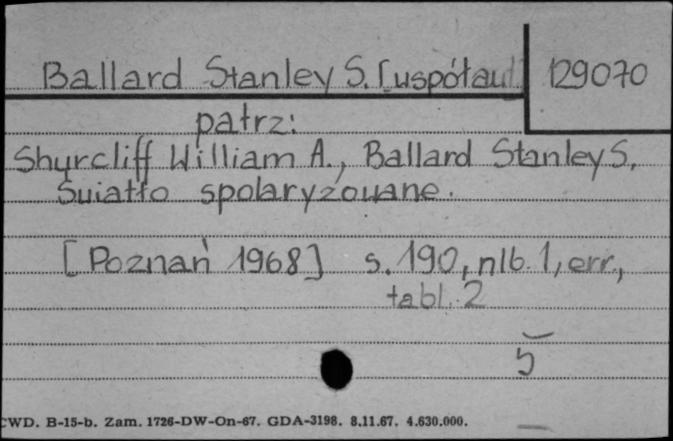 Ballard Stanley S. [współaut] 129070
patrz:
Shurcliff William A., Ballard Stanley S,
Światło spolaryzowane.
[Poznań 1968] s. 190, nlb. 1, err.,
tabl. 2
5
CWD. B-15-b. Zam. 1726-DW-On-67. GDA-3198. 8.11.67. 4.630.000.